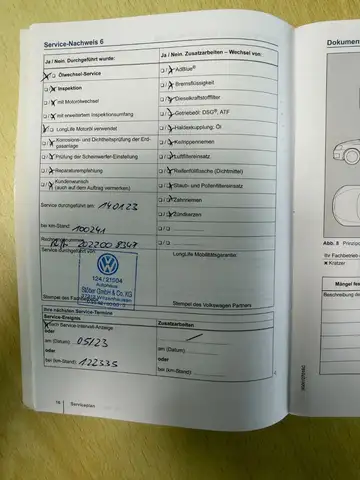 Service-Nachweis 6
Ja / Nein. Durchgeführt wurde:
Ja / Nein. Zusatzarbeiten – Wechsel von:
Ölwechsel-Service
AdBlue®
Inspektion
Bremsflüssigkeit
mit Motorölwechsel
Dieselkraftstofffilter
mit erweitertem Inspektionsumfang
Getriebeöl: DSG®, ATF
LongLife Motoröl verwendet
Haldexkupplung: Öl
Korrosions- und Dichtheitsprüfung der Erdgasanlage
Keilrippenriemen
Prüfung der Scheinwerfer-Einstellung
Luftfiltereinsatz
Reparaturempfehlung
Reifenfüllflasche (Dichtmittel)
Kundenwunsch
(auch auf dem Auftrag vermerken)
Staub- und Pollenfiltereinsatz
Service durchgeführt am: 140123
Zahnriemen
Zündkerzen
bei km-Stand: 100241
202200 8347
Service durchgeführt von:
LongLife Mobilitätsgarantie:
124 / 21504
Autohaus
Stöber GmbH & Co. KG
Stempel des Fachbetriebs
Stempel des Volkswagen Partners
Ihre nächsten Service-Termine
Service-Ereignis
Zusatzarbeiten
Nach Service-Intervall-Anzeige
oder
am (Datum): 05123
am (Datum):
oder
oder
bei (km-Stand): 122335
bei (km-Stand):
16
Serviceplan
Dokumen
Abb. 8
Ihr Fachbetrieb
Kratzer
Mängel
Beschreibung